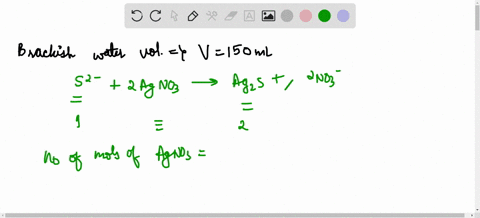 Brackish water vol. => V = 150 mL
S²⁻ + 2AgNO₃ → Ag₂S + , 2NO₃⁻
= =
1 ≡ 2
No of mols of AgNO₃ =